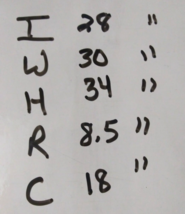 I 28 "
W 30 "
H 34 "
R 8.5 "
C 18 "